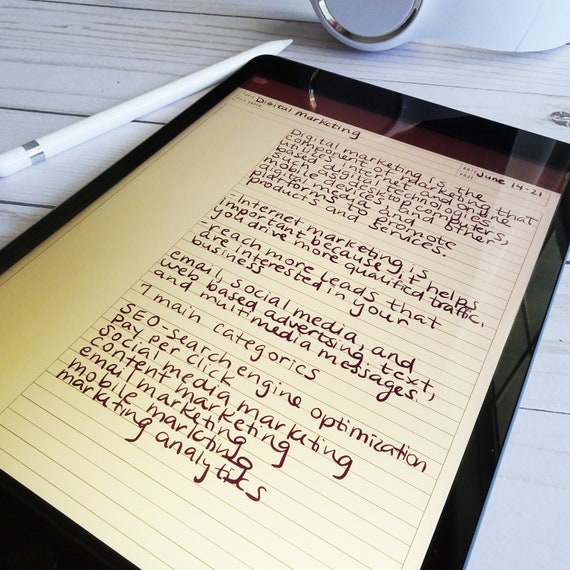 Digital marketing
June 14-21
Digital marketing is the
component of marketing that
utilizes internet and online
based digital technologies
such as desktop computers,
mobile devices and others,
digital media and
platforms and promote
products and services.
Internet marketing is
important because it helps
you drive more qualified traffic.
-reach more leads that
are interested in your
business
email, social media, and
web based advertising, text,
and multimedia messages.
7 main categories
SEO-search engine optimization
pay per click
social media marketing
content marketing
email marketing
mobile marketing
marketing analytics